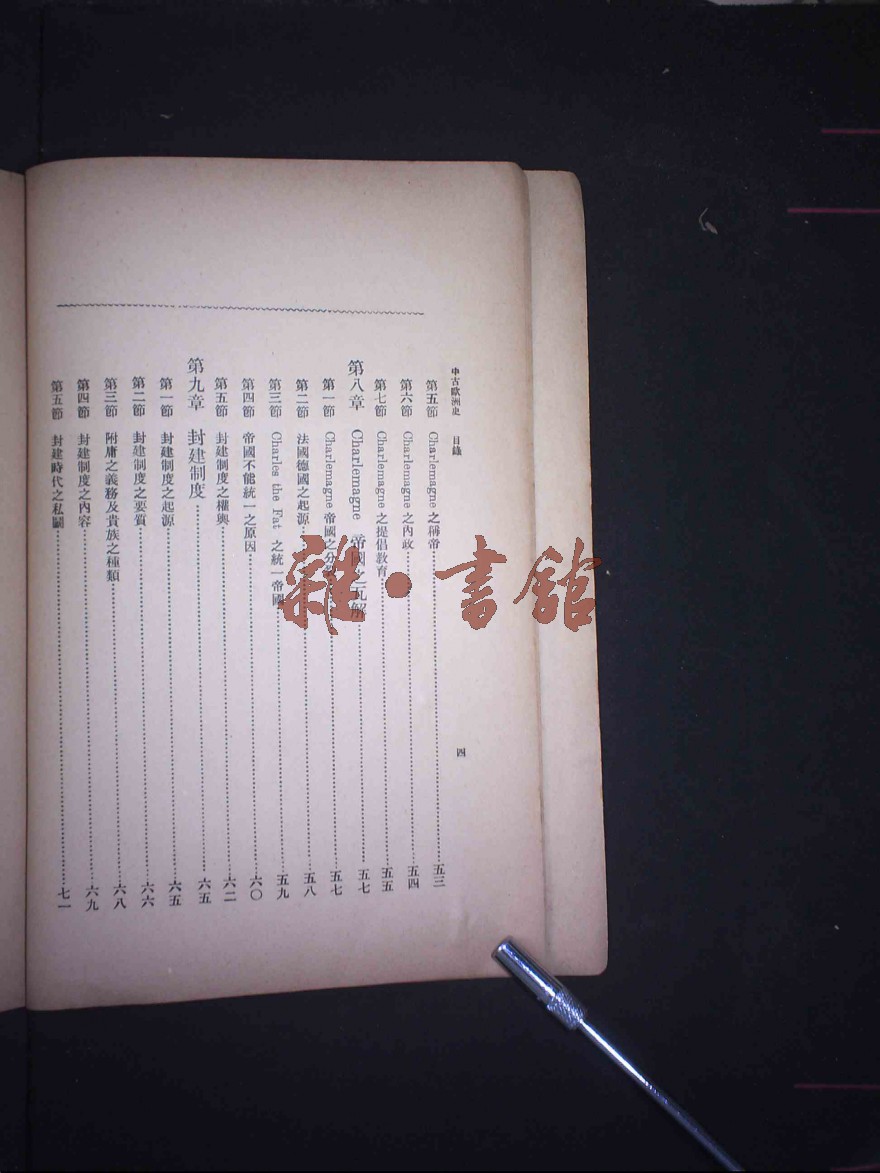 中古歐洲史 目錄 四
第五節 Charlemagne 之稱帝 五三
第六節 Charlemagne 之內政 五四
第七節 Charlemagne 之提倡教育 五五
第八章 Charlemagne 帝國之瓦解 五七
第一節 Charlemagne 帝國之分 五七
第二節 法國德國之起源 五八
第三節 Charles the Fat 之統一帝國 五九
第四節 帝國不能統一之原因 六〇
第五節 封建制度之權輿 六二
第九章 封建制度 六五
第一節 封建制度之起源 六五
第二節 封建制度之要質 六六
第三節 附庸之義務及貴族之種類 六八
第四節 封建制度之內容 六九
第五節 封建時代之私鬭 七一
雜·書館